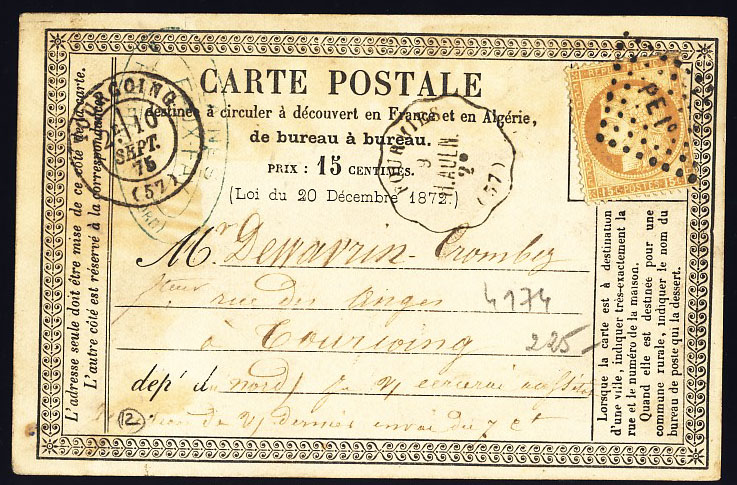 CARTE POSTALE
destinée à circuler à découvert en France et en Algérie,
de bureau à bureau.
PRIX : 15 CENTIMES.
(Loi du 20 Décembre 1872.)
L'adresse seule doit être mise de ce côté de la carte.
L'autre côté est réservé à la correspondance
TOURCOING
10
SEPT.
75
(57)
FOURMIES
9
H.AULN.
2°
(57)
REPUB
15 C. POSTES 15 C.
PE1°
Mr Dewavrin-Crombez
rue des Anges
à Tourcoing
dépt du nord
4174
225-
12
dernier envoi du 7 ct
Lorsque la carte est à destination
d'une ville, indiquer très-exactement la
rue et le numéro de la maison.
Quand elle est destinée pour une
commune rurale, indiquer le nom du
bureau de poste qui la dessert.